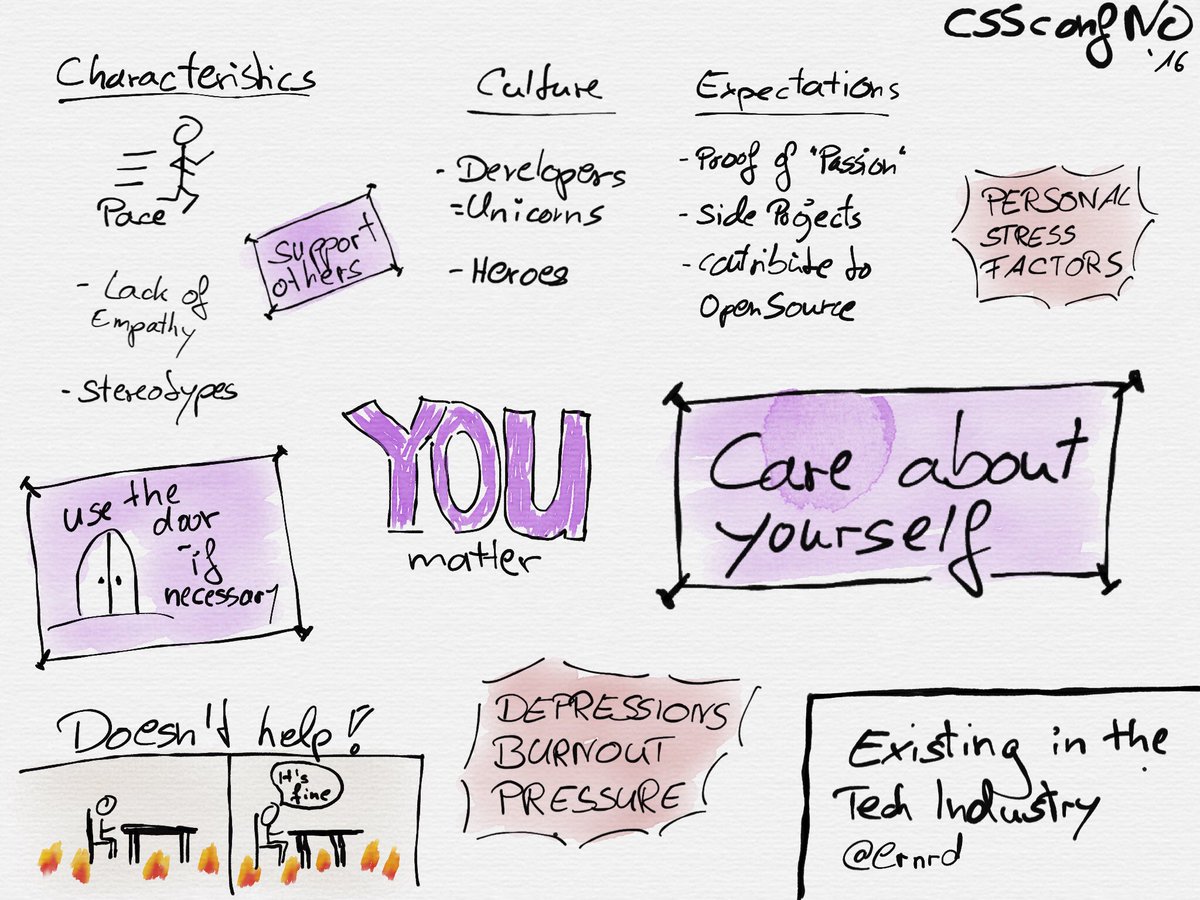 CSSconf NO
'16
Characteristics
Pace
- Lack of
Empathy
- Stereotypes
support
others
Culture
- Developers
= Unicorns
- Heroes
Expectations
- Proof of "Passion"
- Side Projects
- contribute to
OpenSource
PERSONAL
STRESS
FACTORS
use the
door
if
necessary
YOU
matter
Care about
yourself
Doesn't help!
It's
fine
DEPRESSIONS
BURNOUT
PRESSURE
Existing in the
Tech Industry
@ernrd